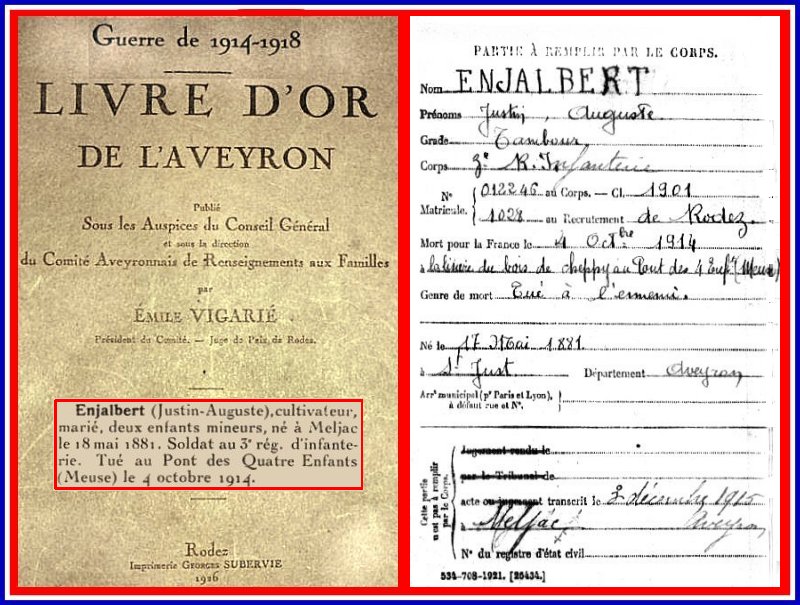 Guerre de 1914-1918
LIVRE D'OR
DE L'AVEYRON
Publié
Sous les Auspices du Conseil Général
et sous la direction
du Comité Aveyronnais de Renseignements aux Familles
par
ÉMILE VIGARIÉ
Président du Comité. — Juge de Paix de Rodez.
Enjalbert (Justin-Auguste), cultivateur,
marié, deux enfants mineurs, né à Meljac
le 18 mai 1881. Soldat au 3e rég. d'infante-
rie. Tué au Pont des Quatre Enfants
(Meuse) le 4 octobre 1914.
Rodez
Imprimerie GEORGES SUBERVIE
1926
PARTIE À REMPLIR PAR LE CORPS.
Nom ENJALBERT
Prénoms Justin, Auguste
Grade Tambour
Corps 3e R. Infanterie
N° Matricule. 012246 au Corps. — Cl. 1901
1028 au Recrutement de Rodez.
Mort pour la France le 4 Octbre 1914
à la lisière du bois de cheppy au Pont des 4 Enfts (Meuse)
Genre de mort Tué à l'ennemi.
Né le 17 Mai 1881
à St Just Département Aveyron
Arrt municipal (pr Paris et Lyon),
à défaut rue et N°.
Cette partie
n'est pas à remplir
par le Corps.
Jugement rendu le
par le Tribunal de
acte ou jugement transcrit le 3 décembre 1915
à Meljac Aveyron
N° du registre d'état civil
534-708-1921. [26434.]